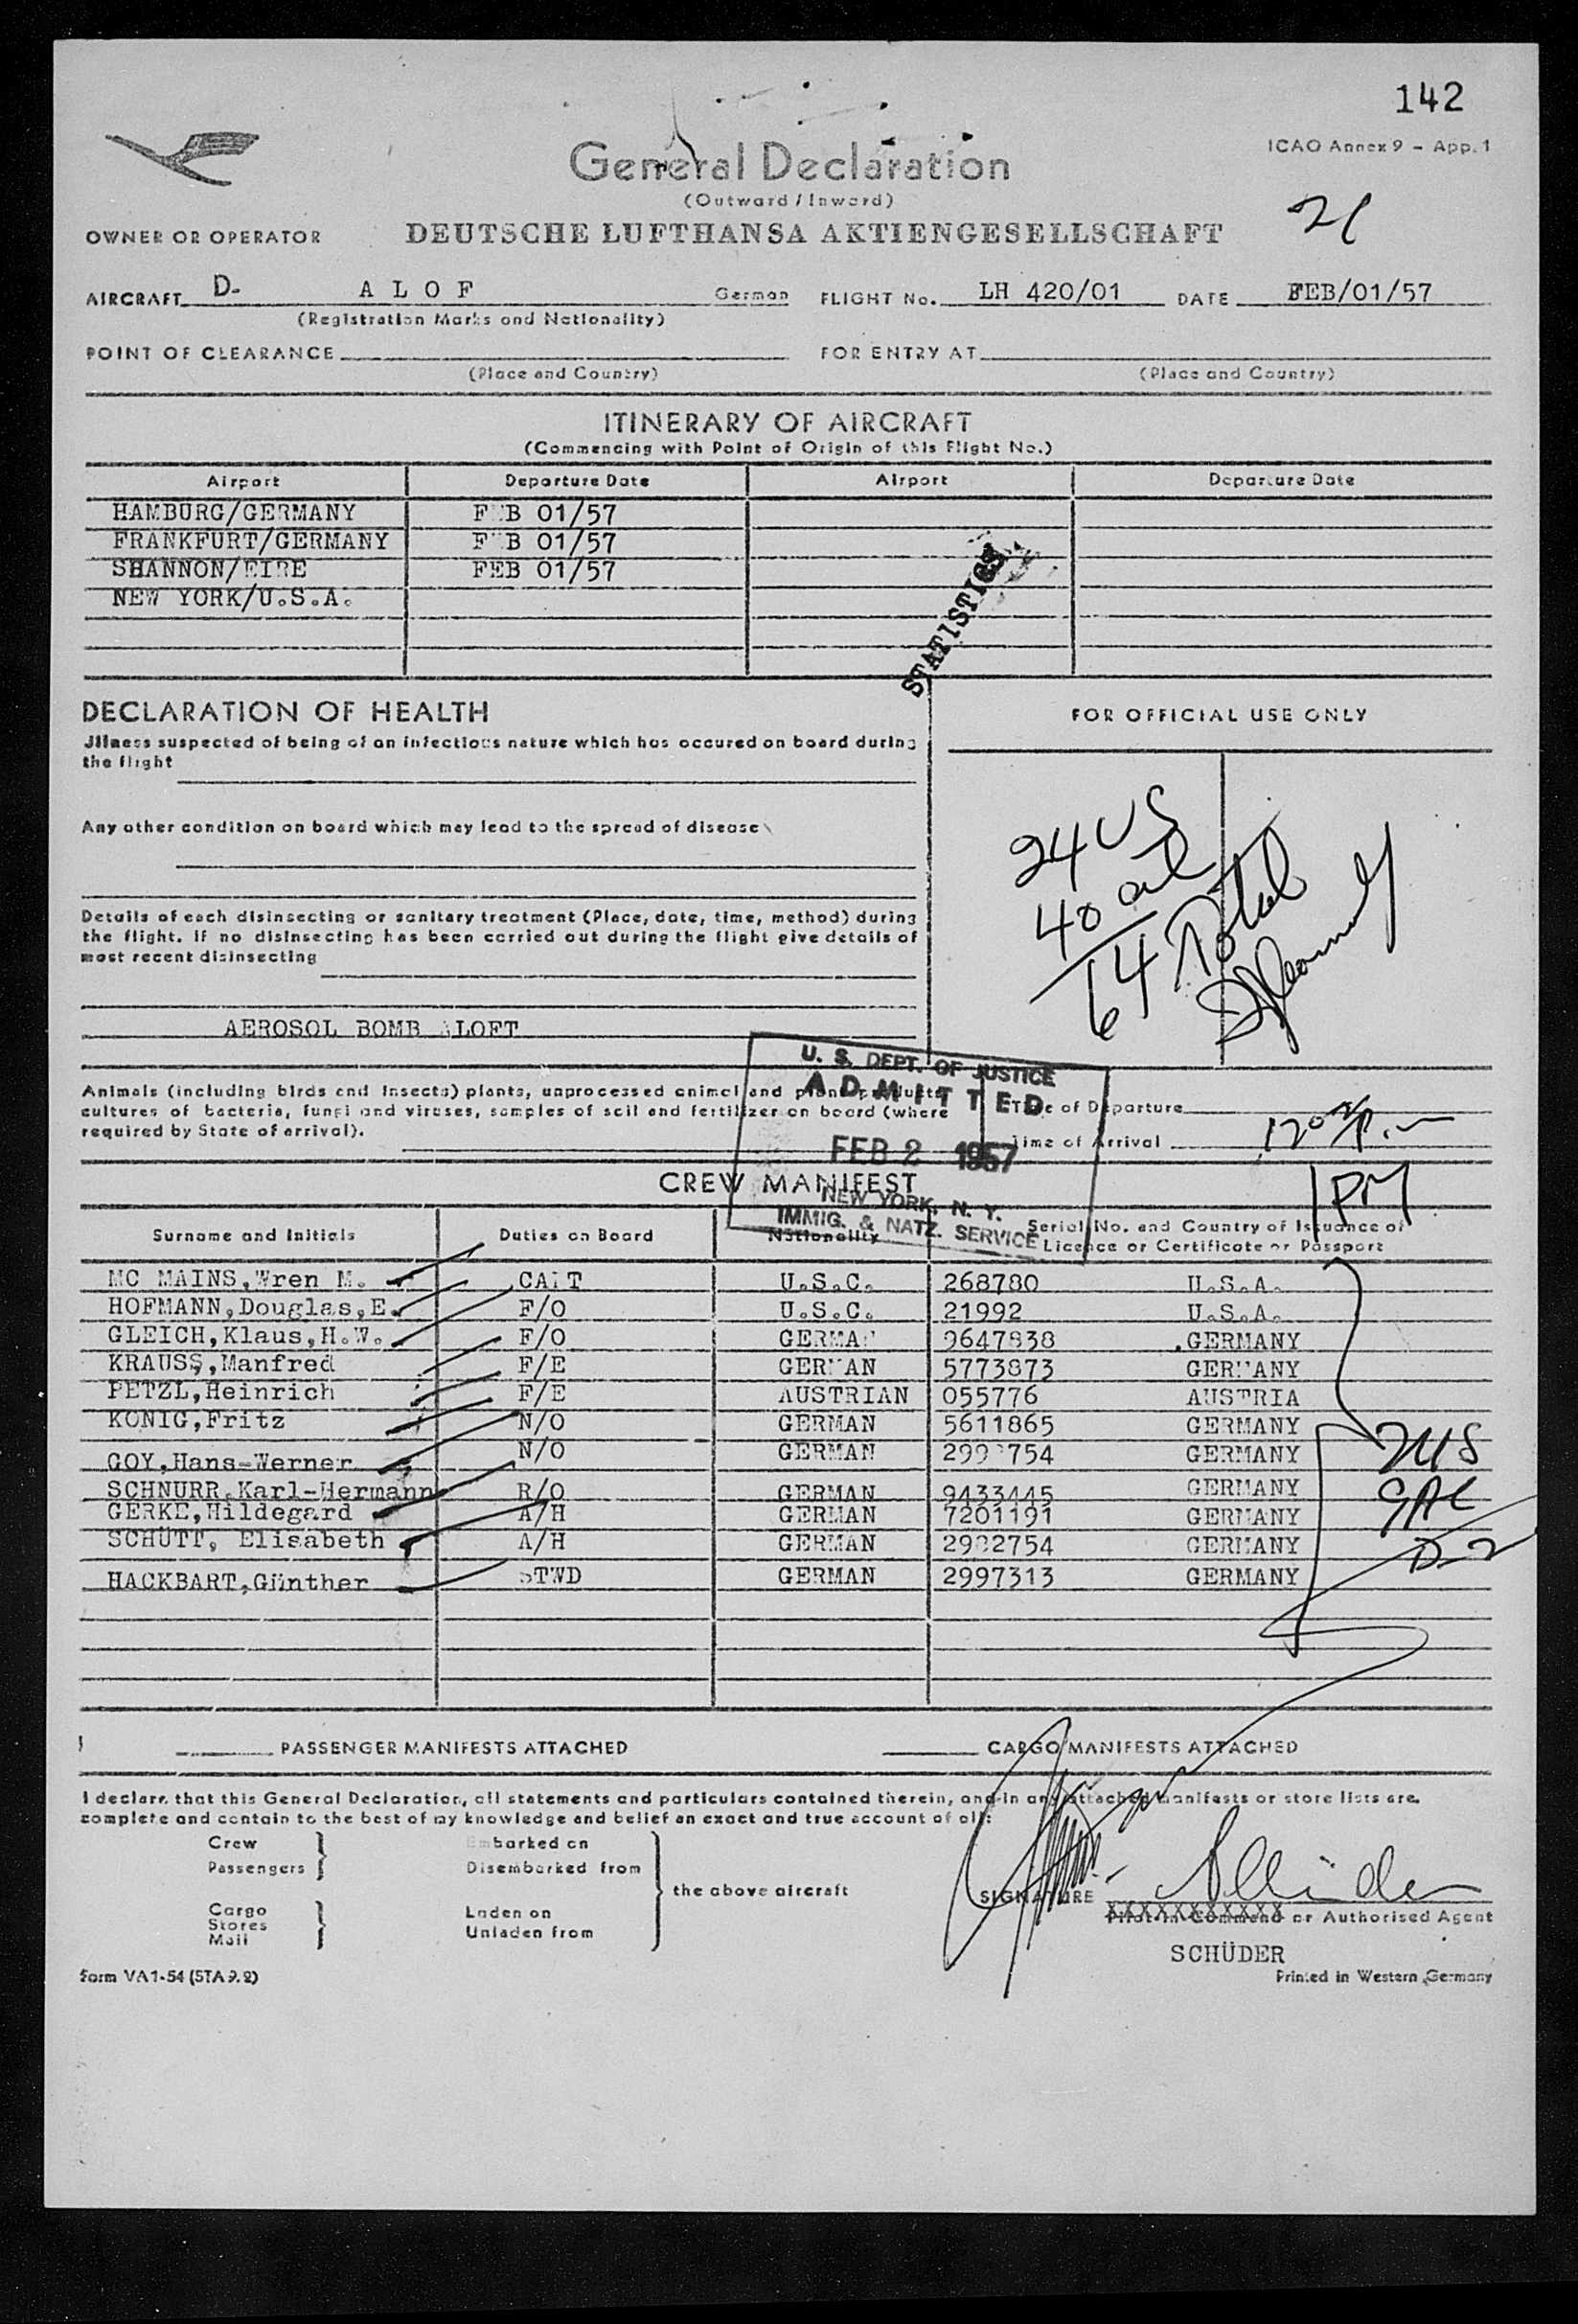 142
ICAO Annex 9 – App. 1
General Declaration
(Outward / Inward)
21
OWNER OR OPERATOR DEUTSCHE LUFTHANSA AKTIENGESELLSCHAFT
AIRCRAFT D- A L O F German FLIGHT No. LH 420/01 DATE FEB/01/57
(Registration Marks and Nationality)
POINT OF CLEARANCE FOR ENTRY AT
(Place and Country) (Place and Country)
ITINERARY OF AIRCRAFT
(Commencing with Point of Origin of this Flight No.)
Airport Departure Date Airport Departure Date
HAMBURG/GERMANY FEB 01/57
FRANKFURT/GERMANY FEB 01/57
SHANNON/EIRE FEB 01/57
NEW YORK/U.S.A.
STATISTICS
DECLARATION OF HEALTH
FOR OFFICIAL USE ONLY
Jllness suspected of being of an infectious nature which has occured on board during
the flight
Any other condition on board which may lead to the spread of disease
24 US
40 al
64 Total
Details of each disinsecting or sanitary treatment (Place, date, time, method) during
the flight. If no disinsecting has been carried out during the flight give details of
most recent disinsecting
AEROSOL BOMB ALOFT
U. S. DEPT. OF JUSTICE
ADMITTED
FEB 2 1957
NEW YORK, N. Y.
IMMIG. & NATZ. SERVICE
Animals (including birds and insects) plants, unprocessed animal and plant products
cultures of bacteria, fungi and viruses, samples of soil and fertilizer on board (where
required by State of arrival).
Time of Departure
Time of Arrival
1PM
CREW MANIFEST
Surname and Initials Duties on Board Nationality Serial No. and Country of Issuance of
Licence or Certificate or Passport
MC MAINS,Wren M. CAPT U.S.C. 268780 U.S.A.
HOFMANN,Douglas,E. F/O U.S.C. 21992 U.S.A.
GLEICH,Klaus,H.W. F/O GERMAN 9647838 GERMANY
KRAUSS,Manfred F/E GERMAN 5773873 GERMANY
PETZL,Heinrich F/E AUSTRIAN 055776 AUSTRIA
KONIG,Fritz N/O GERMAN 5611865 GERMANY
GOY,Hans-Werner N/O GERMAN GERMANY
2US
SCHNURR,Karl-Hermann R/O GERMAN 9433445 GERMANY
9AL
GERKE,Hildegard A/H GERMAN 7201191 GERMANY
SCHÜTT, Elisabeth A/H GERMAN GERMANY
D-2
HACKBART,Günther STWD GERMAN 2997313 GERMANY
PASSENGER MANIFESTS ATTACHED CARGO MANIFESTS ATTACHED
I declare that this General Declaration, all statements and particulars contained therein, and in any attached manifests or store lists are
complete and contain to the best of my knowledge and belief an exact and true account of all:
Crew Embarked on
Passengers Disembarked from
the above aircraft
Cargo Laden on
Stores
Mail Unladen from
SIGNATURE Schüder
Pilot-in-Command or Authorised Agent
SCHÜDER
Form VA 1-54 (STA 9.2)
Printed in Western Germany